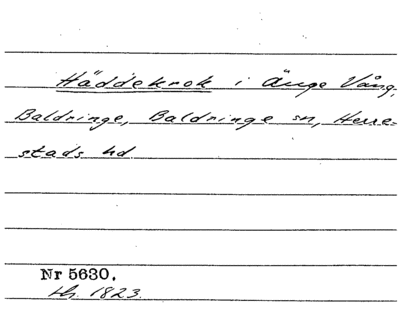 Häddekrok i Änge Vång,
Baldringe, Baldringe sn, Herre-
stads hd
Nr 5630.
th. 1823.